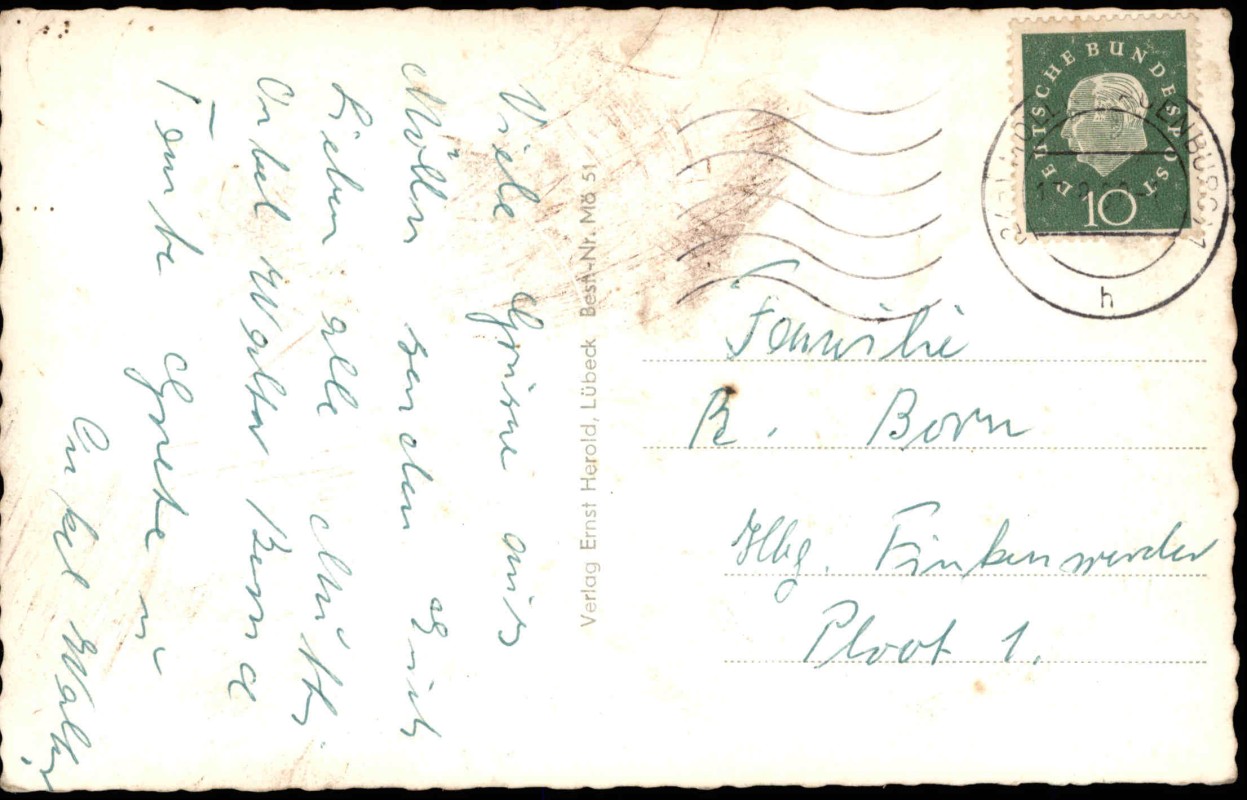 Viele Grüsse aus
Mölln senden Euch
Lieben alle Mutti
Onkel Walter Berna
Tante Grete u
Onkel Walter
Verlag Ernst Herold, Lübeck Best.-Nr. Mö 51
DEUTSCHE BUNDESPOST
10
h
Familie
R. Born
Hbg. Finkenwerder
Ploot 1.